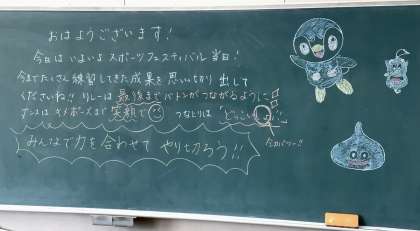 おはようございます!
今日はいよいよスポーツフェスティバル当日!
今までたくさん練習してきた成果を思いっきり出して
くださいね!! リレーは最後までバトンがつながるように
ダンスはキメポーズまで笑顔で つなひきは"どっこいしょ"
みんなで力を合わせて やり切ろう!!